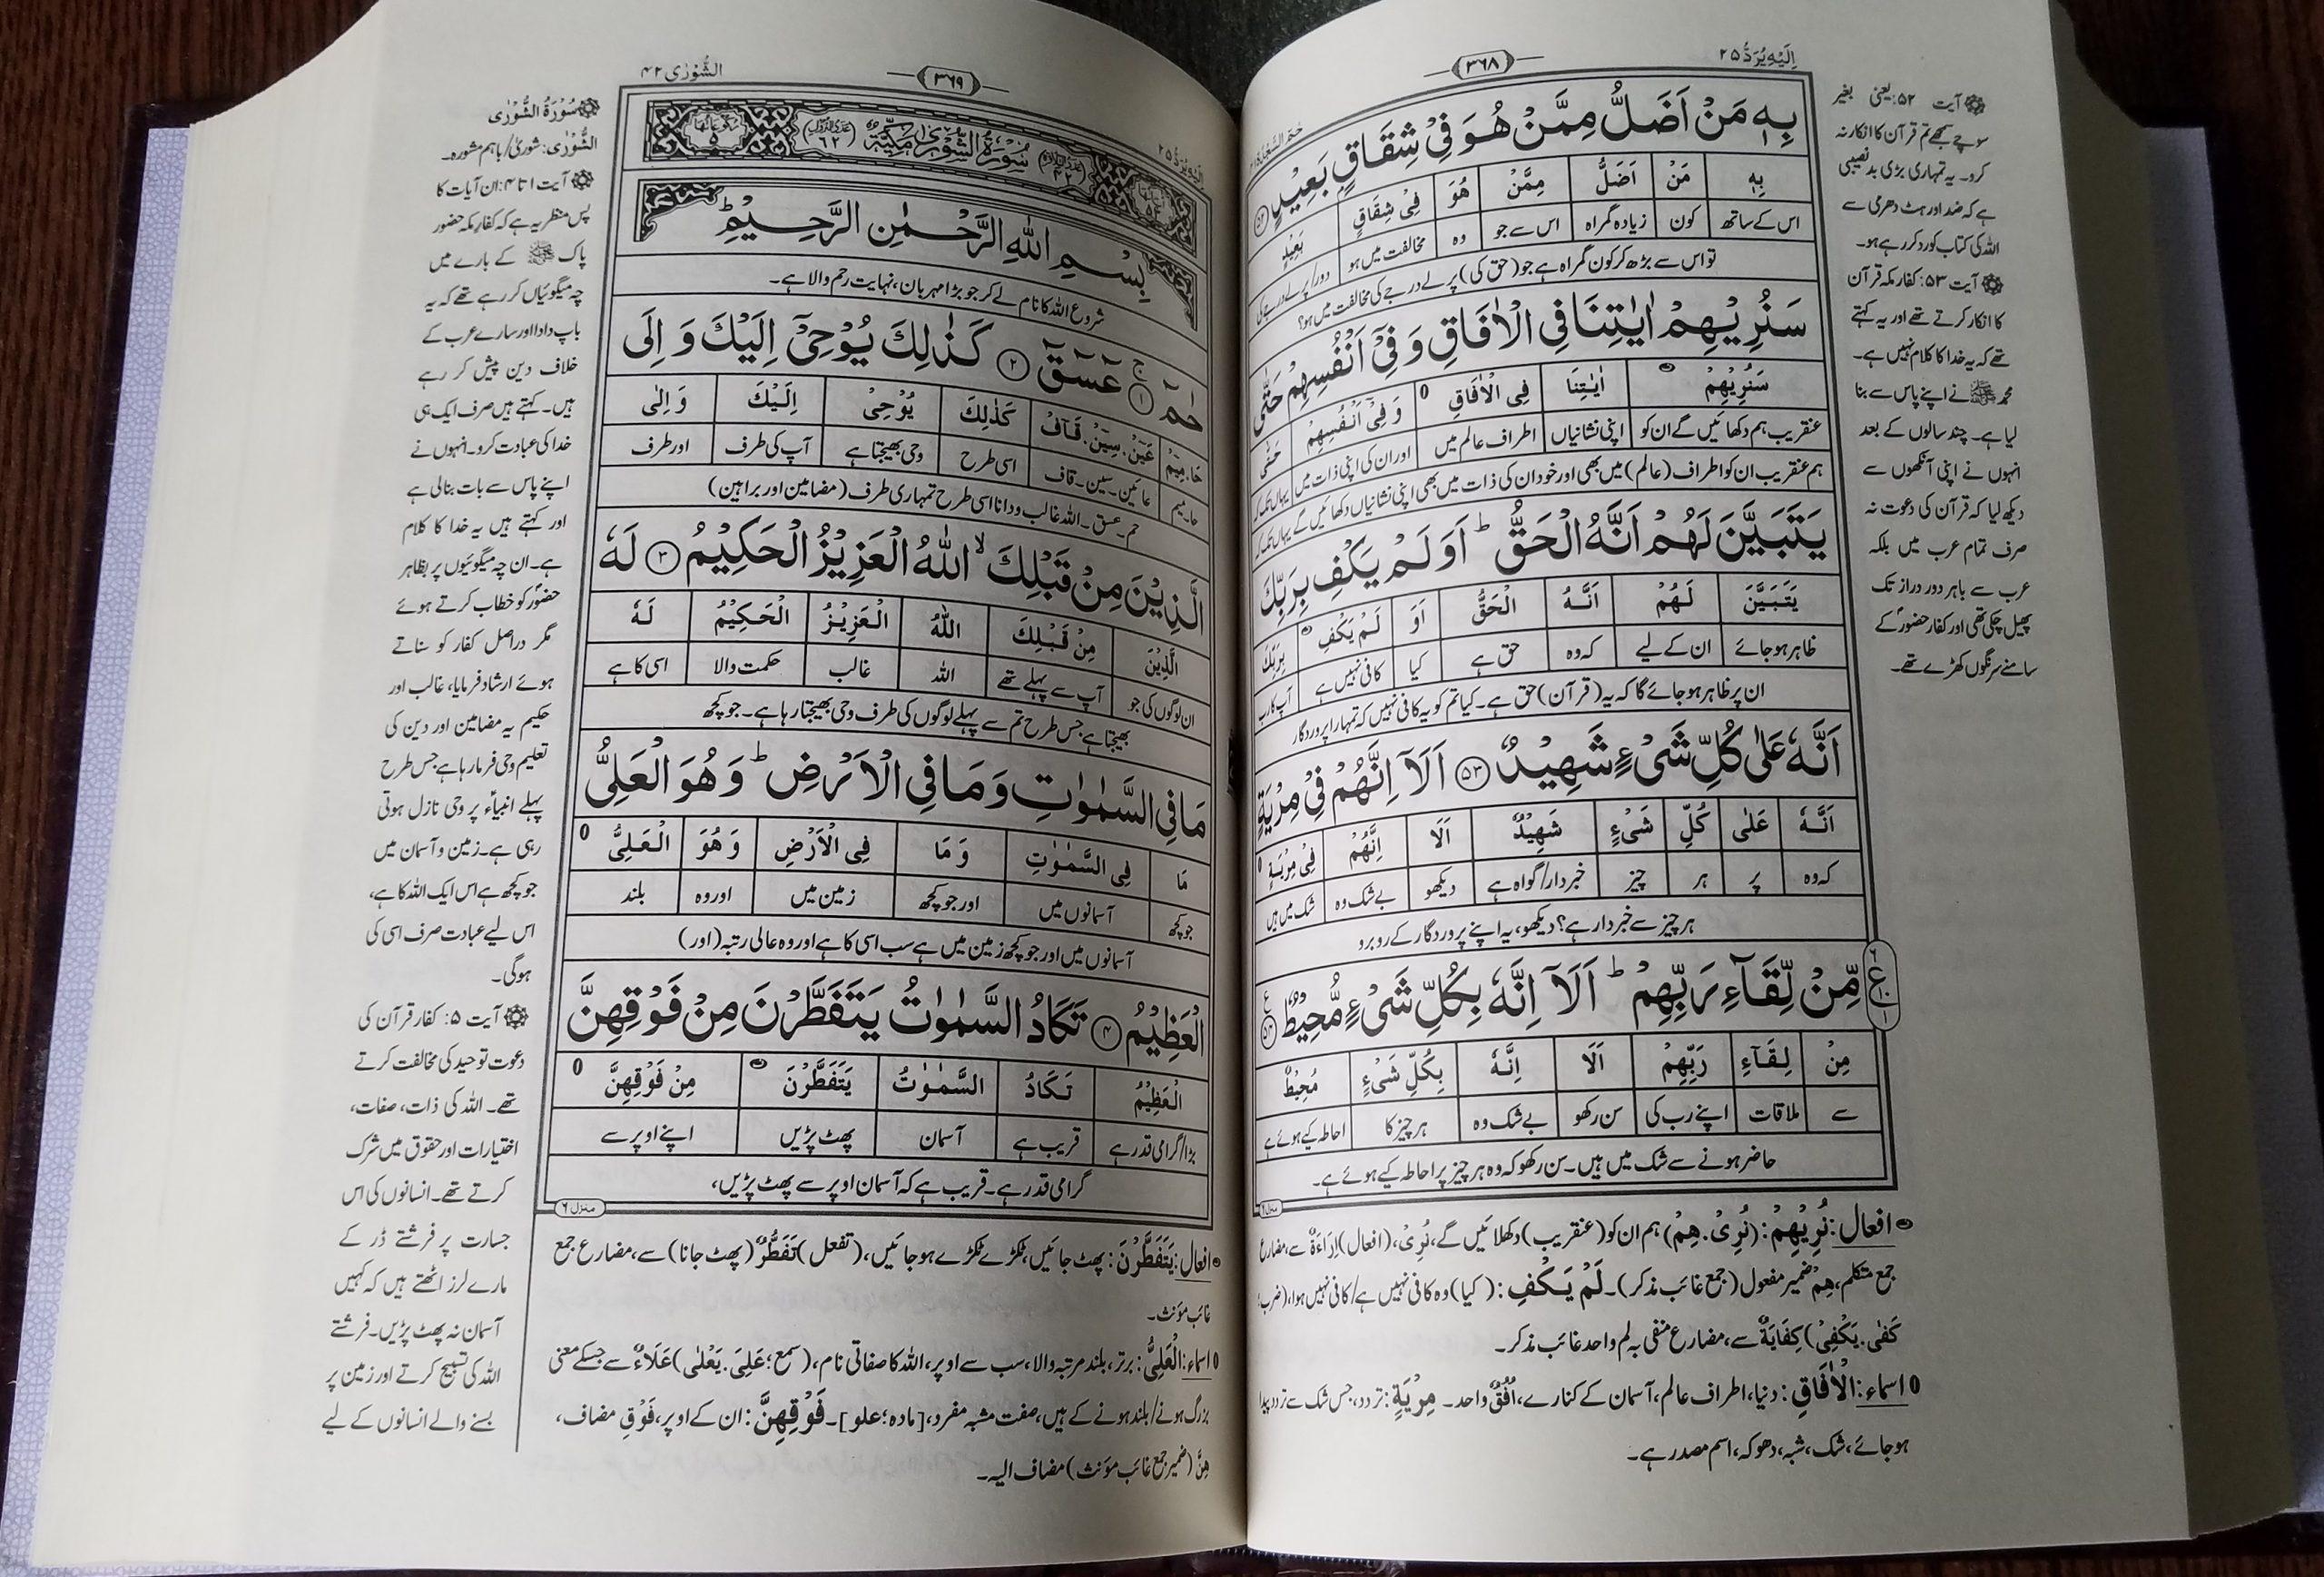 اِلَیْهِ یُرَدُّ ۲۵
۳۶۸
حٰمٓ السَّجْدَة
بِهٖ مَنْ اَضَلُّ مِمَّنْ هُوَ فِیْ شِقَاقٍۭ بَعِیْدٍ ۵۲
بِهٖ مَنْ اَضَلُّ مِمَّنْ هُوَ فِیْ شِقَاقٍ بَعِیْدٍ
اس کے ساتھ کون زیادہ گمراہ اس سے جو وہ مخالفت میں ہو دور/پرلے درجے کی
تو اس سے بڑھ کر کون گمراہ ہے جو (حق کی) پرلے درجے کی مخالفت میں ہو؟
سَنُرِیْهِمْ اٰیٰتِنَا فِی الْاٰفَاقِ وَ فِیْۤ اَنْفُسِهِمْ حَتّٰی
سَنُرِیْهِمْ اٰیٰتِنَا فِی الْاٰفَاقِ وَ فِیْۤ اَنْفُسِهِمْ حَتّٰی
عنقریب ہم دکھائیں گے ان کو اپنی نشانیاں اطراف عالم میں اور ان کی اپنی ذات میں یہاں تک کہ
ہم عنقریب ان کو اطراف (عالم) میں بھی اور خود ان کی ذات میں بھی اپنی نشانیاں دکھائیں گے یہاں تک کہ
یَتَبَیَّنَ لَهُمْ اَنَّهُ الْحَقُّ ؕ اَوَ لَمْ یَكْفِ بِرَبِّكَ
یَتَبَیَّنَ لَهُمْ اَنَّهُ الْحَقُّ اَوَ لَمْ یَكْفِ بِرَبِّكَ
ظاہر ہو جائے ان کے لیے کہ وہ حق ہے کیا کافی نہیں ہے آپ کا رب
ان پر ظاہر ہو جائے گا کہ یہ (قرآن) حق ہے۔ کیا تم کو یہ کافی نہیں کہ تمہارا پروردگار
اَنَّهٗ عَلٰی كُلِّ شَیْءٍ شَهِیْدٌ ۵۳ اَلَاۤ اِنَّهُمْ فِیْ مِرْیَةٍ
اَنَّهٗ عَلٰی كُلِّ شَیْءٍ شَهِیْدٌ اَلَا اِنَّهُمْ فِیْ مِرْیَةٍ
کہ وہ پر ہر چیز خبردار/گواہ ہے دیکھو بے شک وہ شک میں ہیں
ہر چیز سے خبردار ہے؟ دیکھو، یہ اپنے پروردگار کے روبرو
مِّنْ لِّقَآءِ رَبِّهِمْ ؕ اَلَاۤ اِنَّهٗ بِكُلِّ شَیْءٍ مُّحِیْطٌ ۵۴
مِنْ لِقَآءِ رَبِّهِمْ اَلَا اِنَّهٗ بِكُلِّ شَیْءٍ مُحِیْطٌ
سے ملاقات اپنے رب کی سن رکھو بے شک وہ ہر چیز کا احاطہ کیے ہوئے ہے
حاضر ہونے سے شک میں ہیں۔ سن رکھو کہ وہ ہر چیز پر احاطہ کیے ہوئے ہے۔
افعال: نُرِیْهِمْ: (نُرِیْ. هِمْ) ہم ان کو (عنقریب) دکھلائیں گے، نُرِیْ، (افعال) اِرَاءَةٌ سے، مضارع
جمع متکلم، هِمْ ضمیر مفعول (جمع غائب مذکر)۔ لَمْ یَكْفِ: (کیا) وہ کافی نہیں ہے/کافی نہیں ہوا، (ضرب؛
كَفٰی. یَكْفِیْ) كِفَایَةٌ سے، مضارع منفی بہ لم واحد غائب مذکر۔
اسماء: الْاٰفَاقِ: دنیا، اطراف عالم، آسمان کے کنارے، اُفُقٌ واحد۔ مِرْیَةٍ: تردد، جس شک سے تردد پیدا
ہو جائے، شک، شبہ، دھوکہ، اسم مصدر ہے۔
آیت ۵۲: یعنی بغیر
سوچے سمجھے تم قرآن کا انکار نہ
کرو۔ یہ تمہاری بڑی بدنصیبی
ہے کہ ضد اور ہٹ دھرمی سے
اللہ کی کتاب کو رد کر رہے ہو۔
آیت ۵۳: کفار مکہ قرآن
کا انکار کرتے تھے اور یہ کہتے
تھے کہ یہ خدا کا کلام نہیں ہے۔
محمد ﷺ نے اپنے پاس سے بنا
لیا ہے۔ چند سالوں کے بعد
انہوں نے اپنی آنکھوں سے
دیکھ لیا کہ قرآن کی دعوت نہ
صرف تمام عرب میں بلکہ
عرب سے باہر دور دراز تک
پھیل چکی تھی اور کفار حضورؐ کے
سامنے سرنگوں کھڑے تھے۔
ع
اِلَیْهِ یُرَدُّ ۲۵
۳۶۹
الشُّوْرٰی ۴۲
سُوْرَةُ الشُّوْرٰی مَكِّیَّةٌ
بِسْمِ اللّٰهِ الرَّحْمٰنِ الرَّحِیْمِ
شروع اللہ کا نام لے کر جو بڑا مہربان، نہایت رحم والا ہے۔
حٰمٓ ۱ عٓسٓقٓ ۲ كَذٰلِكَ یُوْحِیْۤ اِلَیْكَ وَ اِلَی
حَا. مِیْمْ عَیْنْ. سِیْنْ. قَافْ كَذٰلِكَ یُوْحِیْ اِلَیْكَ وَ اِلٰی
حا۔ میم عا ئین۔ سین۔ قاف اسی طرح وحی بھیجتا ہے آپ کی طرف اور طرف
حم۔ عسق۔ اللہ غالب و دانا اسی طرح تمہاری طرف (مضامین اور براہین)
الَّذِیْنَ مِنْ قَبْلِكَ ۙ اللّٰهُ الْعَزِیْزُ الْحَكِیْمُ ۳ لَهٗ
الَّذِیْنَ مِنْ قَبْلِكَ اللّٰهُ الْعَزِیْزُ الْحَكِیْمُ لَهٗ
ان لوگوں کی جو آپ سے پہلے تھے اللہ غالب حکمت والا اسی کا ہے
بھیجتا ہے جس طرح تم سے پہلے لوگوں کی طرف وحی بھیجتا رہا ہے۔ جو کچھ
مَا فِی السَّمٰوٰتِ وَ مَا فِی الْاَرْضِ ؕ وَ هُوَ الْعَلِیُّ
مَا فِی السَّمٰوٰتِ وَ مَا فِی الْاَرْضِ وَ هُوَ الْعَلِیُّ
جو کچھ آسمانوں میں اور جو کچھ زمین میں اور وہ بلند
آسمانوں میں اور جو کچھ زمین میں ہے سب اسی کا ہے اور وہ عالی رتبہ (اور)
الْعَظِیْمُ ۴ تَكَادُ السَّمٰوٰتُ یَتَفَطَّرْنَ مِنْ فَوْقِهِنَّ
الْعَظِیْمُ تَكَادُ السَّمٰوٰتُ یَتَفَطَّرْنَ مِنْ فَوْقِهِنَّ
بڑا/گرامی قدر ہے قریب ہے آسمان پھٹ پڑیں اپنے اوپر سے
گرامی قدر ہے۔ قریب ہے کہ آسمان اوپر سے پھٹ پڑیں،
منزل ۶
افعال: یَتَفَطَّرْنَ: پھٹ جائیں، ٹکڑے ٹکڑے ہو جائیں، (تفعل) تَفَطُّرٌ (پھٹ جانا) سے، مضارع جمع
غائب مؤنث۔
اسماء: الْعَلِیُّ: برتر، بلند مرتبہ والا، سب سے اوپر، اللہ کا صفاتی نام، (سمع؛ عَلِیَ. یَعْلٰی) عَلَاءٌ سے جسکے معنی
بزرگ ہونے/بلند ہونے کے ہیں، صفت مشبہ مفرد، [مادہ؛ علو]۔ فَوْقِهِنَّ: ان کے اوپر، فَوْقِ مضاف،
هِنَّ (ضمیر جمع غائب مؤنث) مضاف الیہ۔
سُوْرَةُ الشُّوْرٰی
الشُّوْرٰی: شوریٰ/باہم مشورہ۔
آیت ۱ تا ۴: ان آیات کا
پس منظر یہ ہے کہ کفار مکہ حضور
پاک ﷺ کے بارے میں
چہ میگوئیاں کر رہے تھے کہ یہ
باپ دادا اور سارے عرب کے
خلاف دین پیش کر رہے
ہیں۔ کہتے ہیں صرف ایک ہی
خدا کی عبادت کرو۔ انہوں نے
اپنے پاس سے بات بنالی ہے
اور کہتے ہیں یہ خدا کا کلام
ہے۔ ان چہ میگوئیوں پر بظاہر
حضورؐ کو خطاب کرتے ہوئے
مگر دراصل کفار کو سناتے
ہوئے ارشاد فرمایا، غالب اور
حکیم یہ مضامین اور دین کی
تعلیم وحی فرما رہا ہے جس طرح
پہلے انبیاؑء پر وحی نازل ہوتی
رہی ہے۔ زمین و آسمان میں
جو کچھ ہے اس ایک اللہ کا ہے،
اس لیے عبادت صرف اسی کی
ہوگی۔
آیت ۵: کفار قرآن کی
دعوت توحید کی مخالفت کرتے
تھے۔ اللہ کی ذات، صفات،
اختیارات اور حقوق میں شرک
کرتے تھے۔ انسانوں کی اس
جسارت پر فرشتے ڈر کے
مارے لرز اٹھتے ہیں کہ کہیں
آسمان نہ پھٹ پڑیں۔ فرشتے
اللہ کی تسبیح کرتے اور زمین پر
بسنے والے انسانوں کے لیے